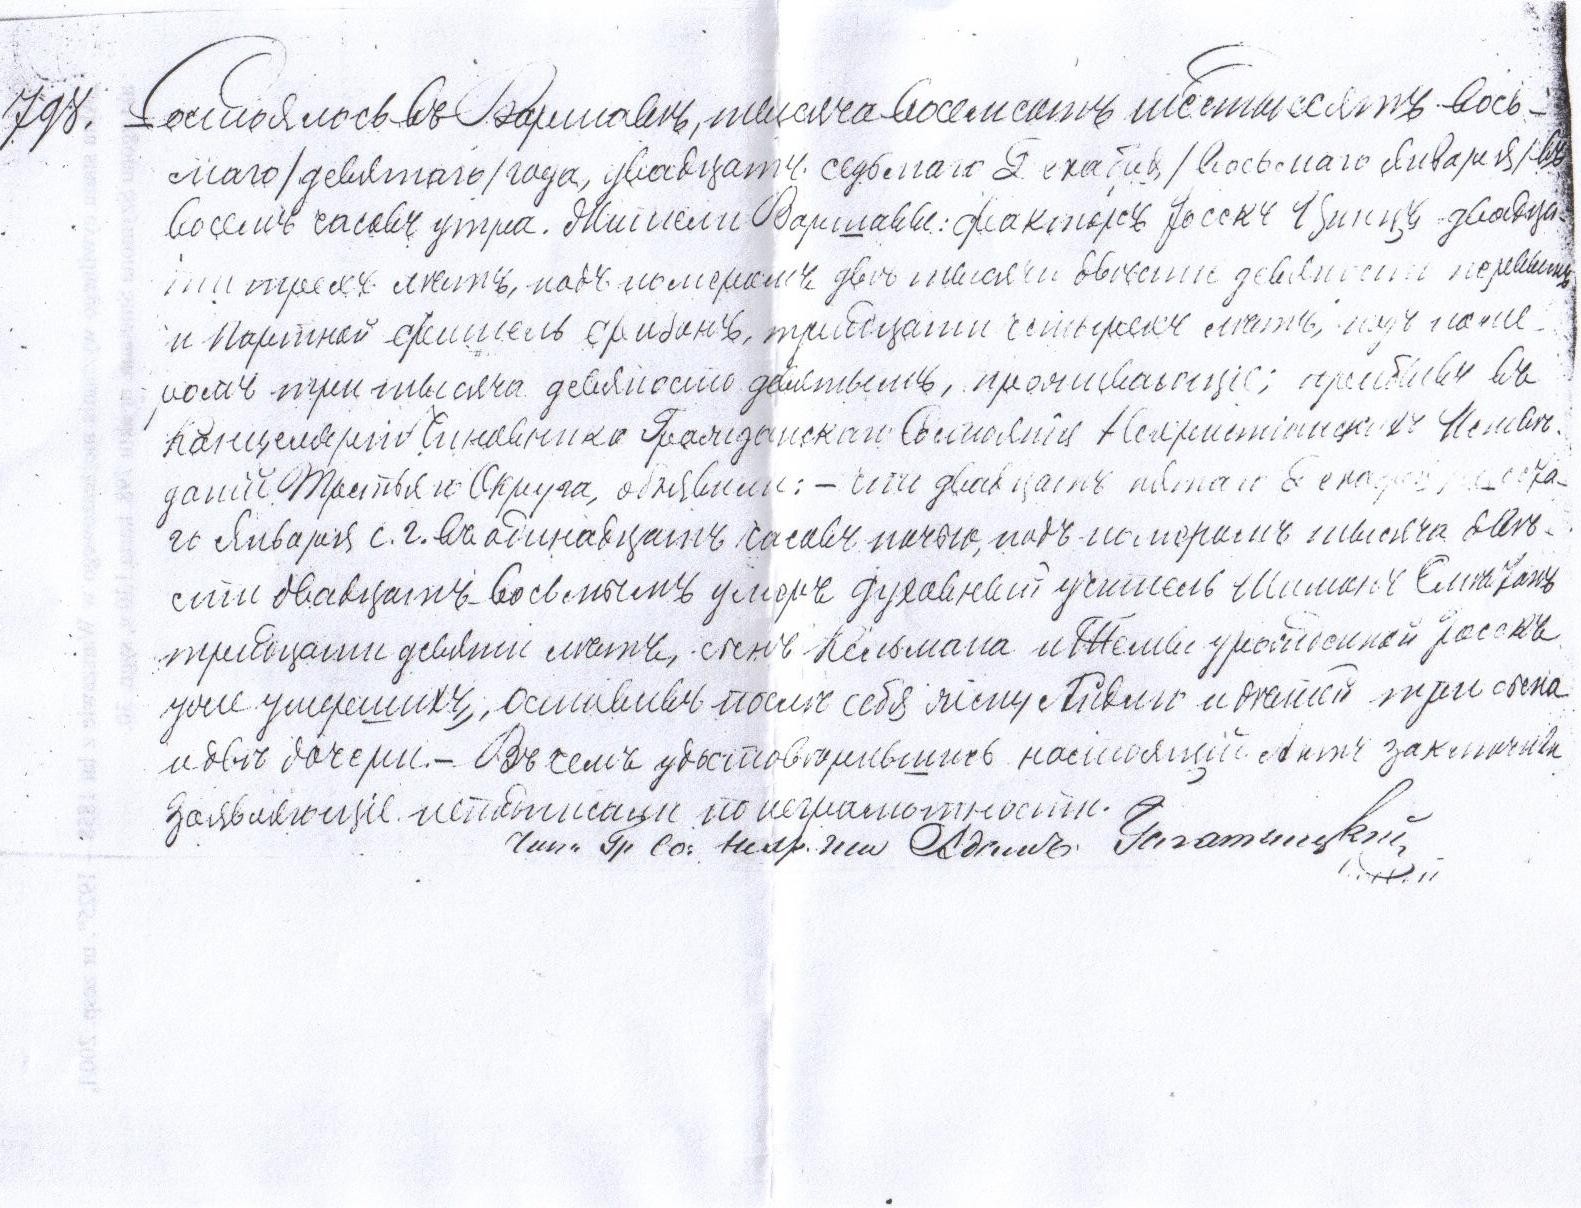 798.
Состоялось въ Варшавѣ, тысяча восемсотъ шестьдесятъ вось-
маго/девятаго/года, двадцать седьмаго Декабря/восьмаго Января/въ
восемь часовъ утра. Жители Варшавы: факторъ Іосекъ двадца-
ти трехъ лѣтъ, подъ номеромъ двѣ тысячи двѣсти девяносто первымъ
и Портной Фишель Грибанъ, тридцати четырехъ лѣтъ, подъ номе-
ромъ три тысяча девяносто девятымъ, проживающіе; прибывъ въ
Канцелярію Чиновника Гражданскаго Состоянія Нехристіанскихъ Исповѣ-
даній Третьяго Округа, объявили: – что двадцать пятаго Декабря
го Января с. г. въ одинадцать часовъ ночью, подъ номеромъ тысяча двѣ-
сти двадцать восьмымъ умеръ духовный учитель Шимонъ
тридцати девяти лѣтъ, сынъ Кельмана и урожденной
уже умершихъ, оставивъ послѣ себя жену и дѣтей три сына
и двѣ дочери. – Въ чемъ удостовѣрившись настоящій Актъ заключенъ
Заявляющіе неподписали по неграмотности.
Чин. Гр. Со. Нехр. Исп. Адамъ